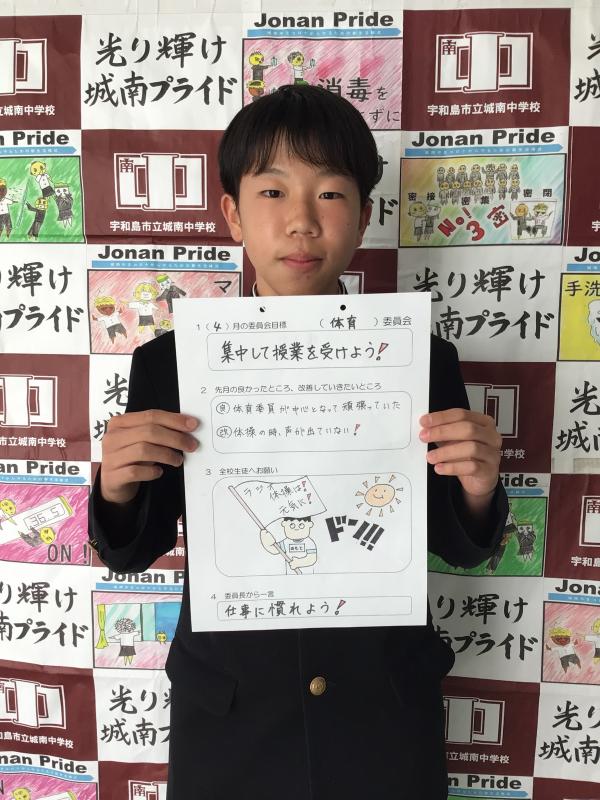 Jonan Pride
光り輝け
城南プライド
消毒を
ずに
南中
宇和島市立城南中学校
Jonan Pride
南中
宇和島市立城南中学校
Jonan Pride
密接
密集
密閉
No!
3密
Jonan Pride
マ
光り輝け
城南プライド
手洗
光り輝け
城南プライド
1（4）月の委員会目標　（ 体育 ）委員会
集中して授業を受けよう!
2　先月の良かったところ、改善していきたいところ
良 体育委員が中心となって頑張っていた
改 体操の時、声が出ていない!
3　全校生徒へお願い
ラジオ
体操は!
元気に!
ドーン!!!
4　委員長から一言
仕事に慣れよう!
36.5
ON!
Jonan Pride
光り輝け
城南プライド
Jonan Pride
Jonan Pride
光り輝け
城南プライド
南中
宇和島市立城南中学校
光り輝け
城南プライド
南中
宇和島市立城南中学校
光り輝け
城南プライド
Jonan Pride
Jonan Pride